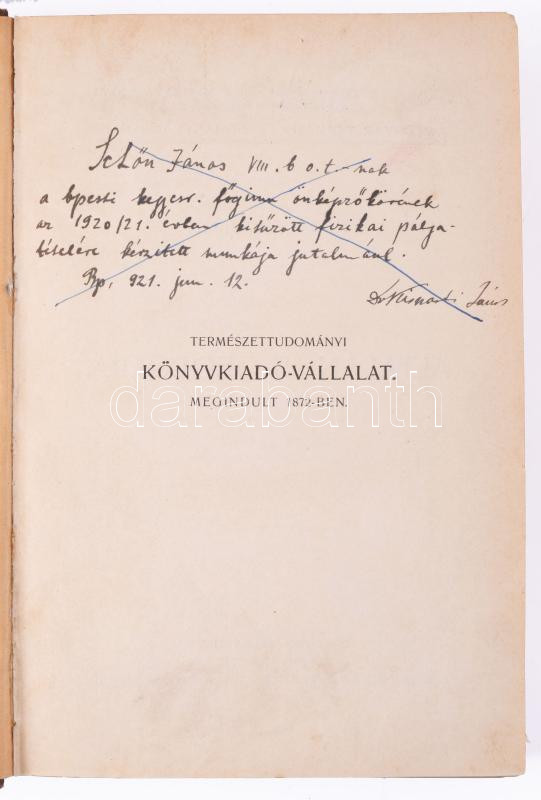 Schön János VIII. b o. t.-nak
a bpesti kegyesr. főgimn önképzőkörének
az 1920/21. évben kitűzött fizikai pálya-
tételére készített munkája jutalmául.
Bp, 921. jun. 12.
Dr János
TERMÉSZETTUDOMÁNYI
KÖNYVKIADÓ-VÁLLALAT.
MEGINDULT 1872-BEN.
darabanth